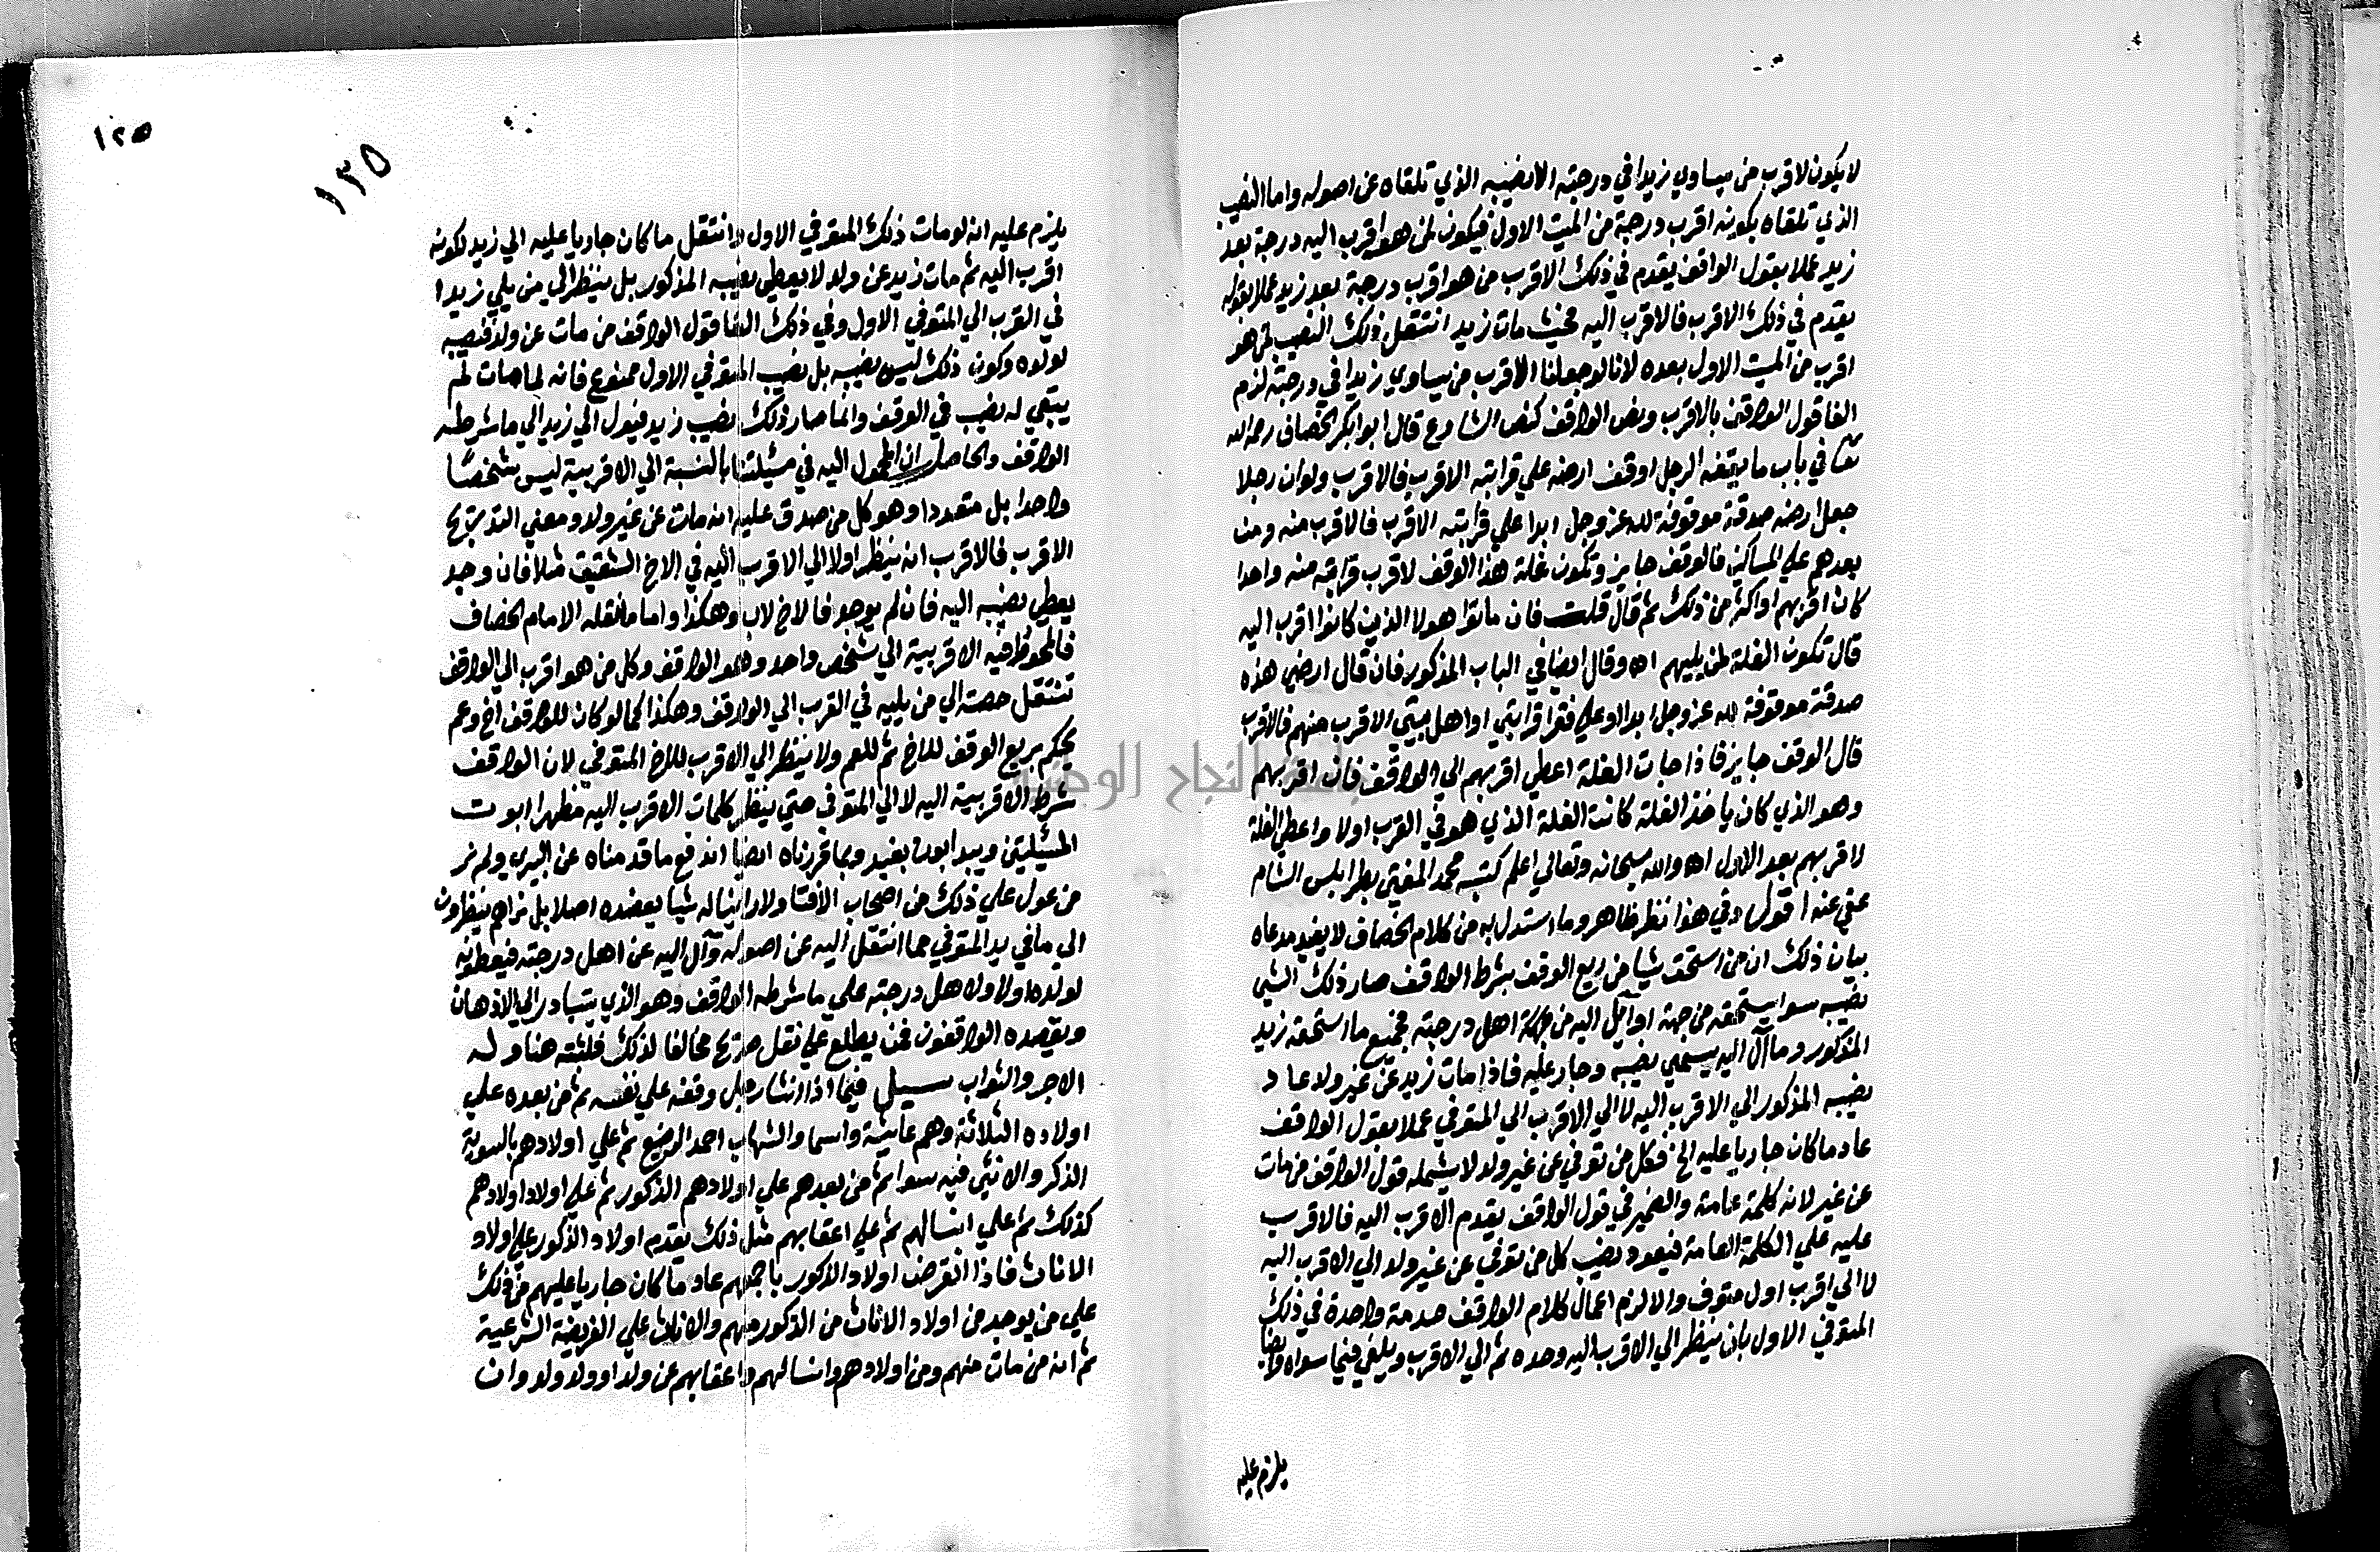 لا يكون لاقرب من يساوي زيدا في درجته الا نصيبه الذي تلقاه عن اصوله واما النصيب
الذي تلقاه بكونه اقرب درجة من الميت الاول فيكون لمن هو اقرب اليه درجة بعد
زيد عملا بقول الواقف يقدم في ذلك الاقرب من هو اقرب درجة بعد زيد عملا بقوله
يقدم في ذلك الاقرب فالاقرب اليه فحيث مات زيد انتقل ذلك النصيب لمن هو
اقرب من الميت الاول بعده لانا لو جعلنا الاقرب من يساوي زيدا في درجته لزم
الغا قول الواقف بالاقرب ونص الواقف كنص الشارع قال ابو بكر الخصاف رحمه الله
تعا في باب ما يقفه الرجل اوقف ارضه علي قرابته الاقرب فالاقرب ولو ان رجلا
جعل ارضه صدقة موقوفة لله عز وجل ابدا علي قرابته الاقرب فالاقرب منه ومن
بعدهم علي المساكين فالوقف جايز وتكون غلة هذا الوقف لاقرب قرابته منه واحدا
كان اقربهم او اكثر من ذلك ثم قال قلت فان ماتوا هولا الذين كانوا اقرب اليه
قال تكون الغلة لمن يليهم اه وقال ايضا في الباب المذكور فان قال ارضي هذه
صدقة موقوفة لله عز وجل ابدا وعلي فقرا قرابتي او اهل بيتي الاقرب منهم فالاقرب
قال الوقف جايز فاذا جات الغلة اعطي اقربهم الي الواقف فان اقربهم
وهو الذي كان ياخذ الغلة كانت الغلة الذي هو في القرب اولا واعطي الغلة
لاقربهم بعد الاول اه والله سبحانه وتعالي اعلم كتبه محمد المفتي بطرابلس الشام
عفي عنه اقول وفي هذا نظر ظاهر وما استدل به من كلام الخصاف لا يفيد مدعاه
بيان ذلك ان من استحق شيا من ريع الوقف بشرط الواقف صار ذلك الشي
نصيبه سوا يستحقه من جهة او آيل اليه من جهة اهل درجته فجميع ما استحقه زيد
المذكور وما آل اليه يسمي نصيبه وجار عليه فاذا مات زيد عن غير ولد عاد
نصيبه المذكور الي الاقرب اليه لا الي الاقرب الي المتوفي عملا بقول الواقف
عاد ما كان جاريا عليه الخ فكل من توفي عن غير ولد لا يشمله قول الواقف من مات
عن غير لانه كلمة عامة والضمير في قول الواقف يقدم الاقرب اليه فالاقرب
عليه علي الكلمة العامة فيعود نصيب كل من توفي عن غير ولد الي الاقرب اليه
لا الي اقرب اول متوف والا لزم اعمال كلام الواقف صدمة واحدة في ذلك
المتوفي الاول بان ينظر الي الاقرب اليه وحده ثم الي الاقرب ويلغي فيما سواه وايضا
يلزم عليه
١٢٥
١٢٥
يلزم عليه انه لو مات ذلك المتوفي الاول وانتقل ما كان جاريا عليه الي زيد لكونه
اقرب اليه ثم مات زيد عن ولد لا يعطي نصيبه المذكور بل ينظر الي من يلي زيدا
في القرب الي المتوفي الاول وفي ذلك الغا قول الواقف من مات عن ولد فنصيبه
لولده وكون ذلك ليس نصيبه بل نصيب المتوفي الاول ممنوع فانه لما مات لم
يبقي له نصيب في الوقف وانما صار ذلك نصيب زيد فيول الي زيد الي ما شرطه
الواقف والحاصل ان المحول اليه في مسئلتنا بالنسبة الي الاقربية ليس شخصا
واحدا بل متعددا وهو كل من صدق عليه انه مات عن غير ولد ومعني التدريج
الاقرب فالاقرب انه ينظر اولا الي الاقرب اليه في الاخ الشقيق مثلا فان وجد
يعطي نصيبه اليه فان لم يوجد فالاخ لاب وهكذا واما ما نقله الامام الخصاف
فالملحوظ فيه الاقربية الي شخص واحد وهو الواقف وكل من هو اقرب الي الواقف
تنتقل حصته الي من يليه في القرب الي الواقف وهكذا كما لو كان للواقف اخ وعم
يحكم بريع الوقف للاخ ثم للعم ولا ينظر الي الاقرب للاخ المتوفي لان الواقف
شرط الاقربية اليه لا الي المتوفي حتي ينظر كلمات الاقرب اليه فظهر ابوت
المسئلتين ويبدا بون بعيد وبما قررناه ايضا اندفع ما قدمناه عن البيري ولم نر
من عول علي ذلك من اصحاب الافتا ولا راينا له شيا يعضده اصلا بل نراهم ينظرون
الي ما في يد المتوفي مما انتقل اليه عن اصوله وآل اليه عن اهل درجته فيعطونه
لولده او لاهل درجته علي ما شرطه الواقف وهو الذي يتبادر الي الاذهان
ويقصده الواقفون فمن يطلع علي نقل صريح مخالفا لذلك فليثبته هنا وله
الاجر والثواب سيل فيما اذا انشا رجل وقفه علي نفسه ثم من بعده علي
اولاده الثلاثة وهم عايشة واسما والشهاب احمد الرضيع ثم علي اولادهم بالسوية
الذكر والانثي فيه سوا ثم من بعدهم علي اولادهم الذكور ثم علي اولاد اولادهم
كذلك ثم علي انسالهم ثم علي اعقابهم مثل ذلك يقدم اولاد الذكور علي اولاد
الاناث فاذا انقرض اولاد الذكور باجمعهم عاد ما كان جاريا عليهم من ذلك
علي من يوجد من اولاد الاناث من الذكور منهم والاناث علي الفريضة الشرعية
ثم انه من مات منهم ومن اولادهم وانسالهم واعقابهم عن ولد او ولد ولد وان
جامعة النجاح الوطنية